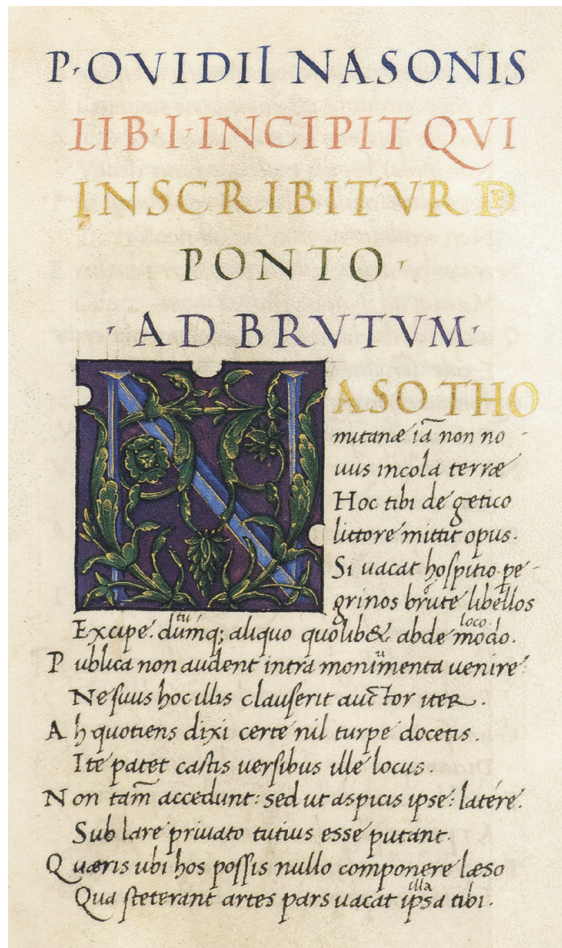 P· OVIDII NASONIS
LIB·I·INCIPIT QVI
INSCRIBITVR DE
PONTO·
·AD BRVTVM·
NASO THO
mitanæ iā non no-
uus incola terræ
Hoc tibi de getico
littore mittit opus.
Si uacat hospitio pe-
grinos brute libellos
Excipe. dumq; aliquo quolib& abde modo.
tu
loco
Publica non audent intra monimenta uenire
u
Ne suus hoc illis clauserit auctor iter.
Ah quotiens dixi certe nil turpe docetis.
Ite patet castis uersibus ille locus.
Non tam̄ accedunt: sed ut aspicis ipse: latére.
Sub lare priuato tutius esse putant.
Quæris ubi hos possis nullo componere læso
Qua steterant artes pars uacat ipsa tibi.
illa